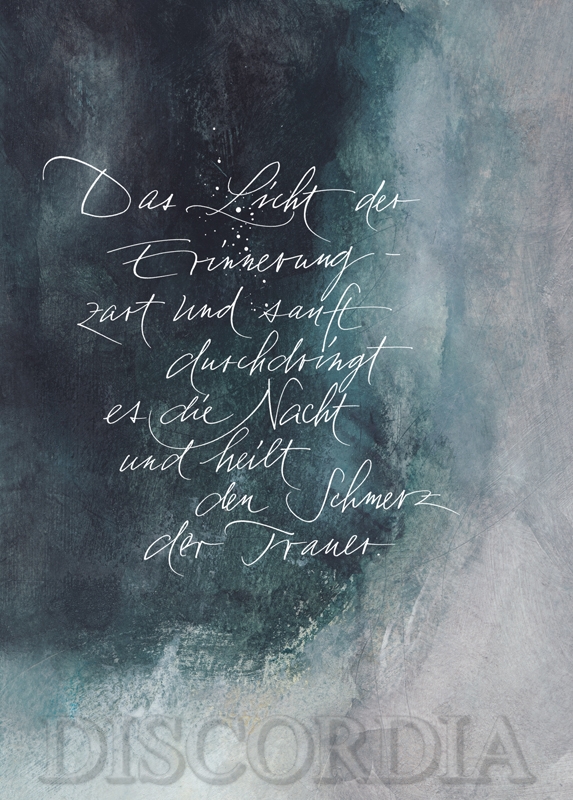 Das Licht der
Erinnerung -
zart und sanft
durchdringt
es die Nacht
und heilt
den Schmerz
der Trauer.
DISCORDIA